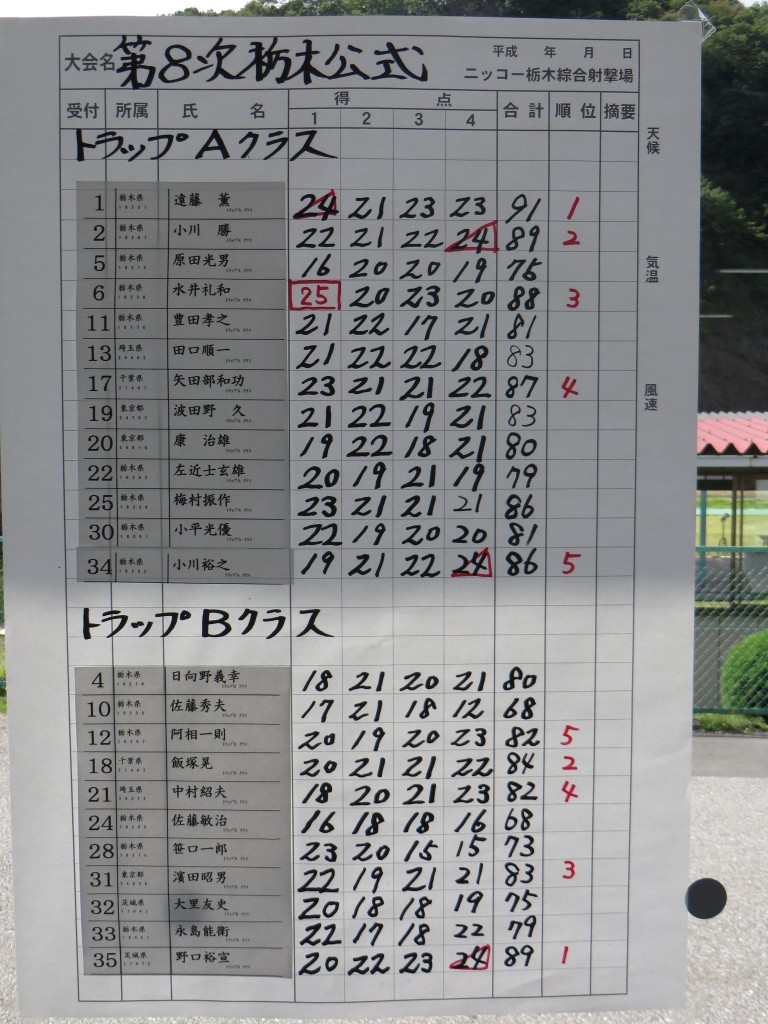 大会名 第8次栃木公式 平成 年 月 日
ニッコー栃木綜合射撃場
受付 所属 氏 名 得 点 合計 順位 摘要
1 2 3 4
天候
気温
風速
トラップAクラス
1 栃木県 遠藤 薫 24 21 23 23 91 1
2 栃木県 小川 勝 22 21 22 24 89 2
5 栃木県 原田光男 16 20 20 19 75
6 栃木県 水井礼和 25 20 23 20 88 3
11 栃木県 豊田孝之 21 22 17 21 81
13 埼玉県 田口順一 21 22 22 18 83
17 千葉県 矢田部和功 23 21 21 22 87 4
19 東京都 波田野 久 21 22 19 21 83
20 東京都 康 治雄 19 22 18 21 80
22 栃木県 左近士玄雄 20 19 21 19 79
25 栃木県 梅村振作 23 21 21 21 86
30 栃木県 小平光優 22 19 20 20 81
34 栃木県 小川裕之 19 21 22 24 86 5
トラップBクラス
4 栃木県 日向野義幸 18 21 20 21 80
10 栃木県 佐藤秀夫 17 21 18 12 68
12 栃木県 阿相一則 20 19 20 23 82 5
18 千葉県 飯塚晃 20 21 21 22 84 2
21 埼玉県 中村紹夫 18 20 21 23 82 4
24 栃木県 佐藤敏治 16 18 18 16 68
28 栃木県 笹口一郎 23 20 15 15 73
31 東京都 濱田昭男 22 19 21 21 83 3
32 茨城県 大里友史 20 18 18 19 75
33 栃木県 永島能衛 22 17 18 22 79
35 茨城県 野口裕宣 20 22 23 24 89 1